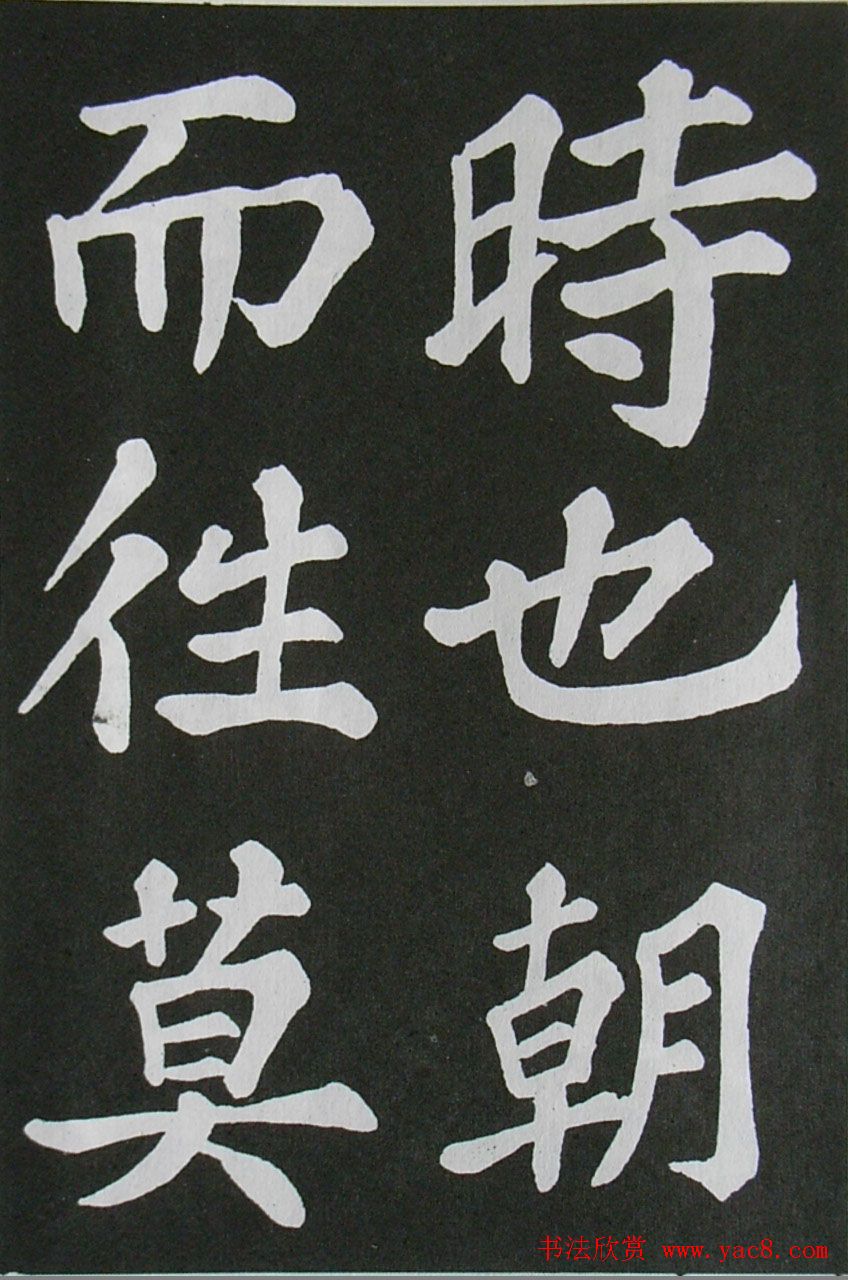 時也朝
而徃莫
书法欣赏 www.yac8.com